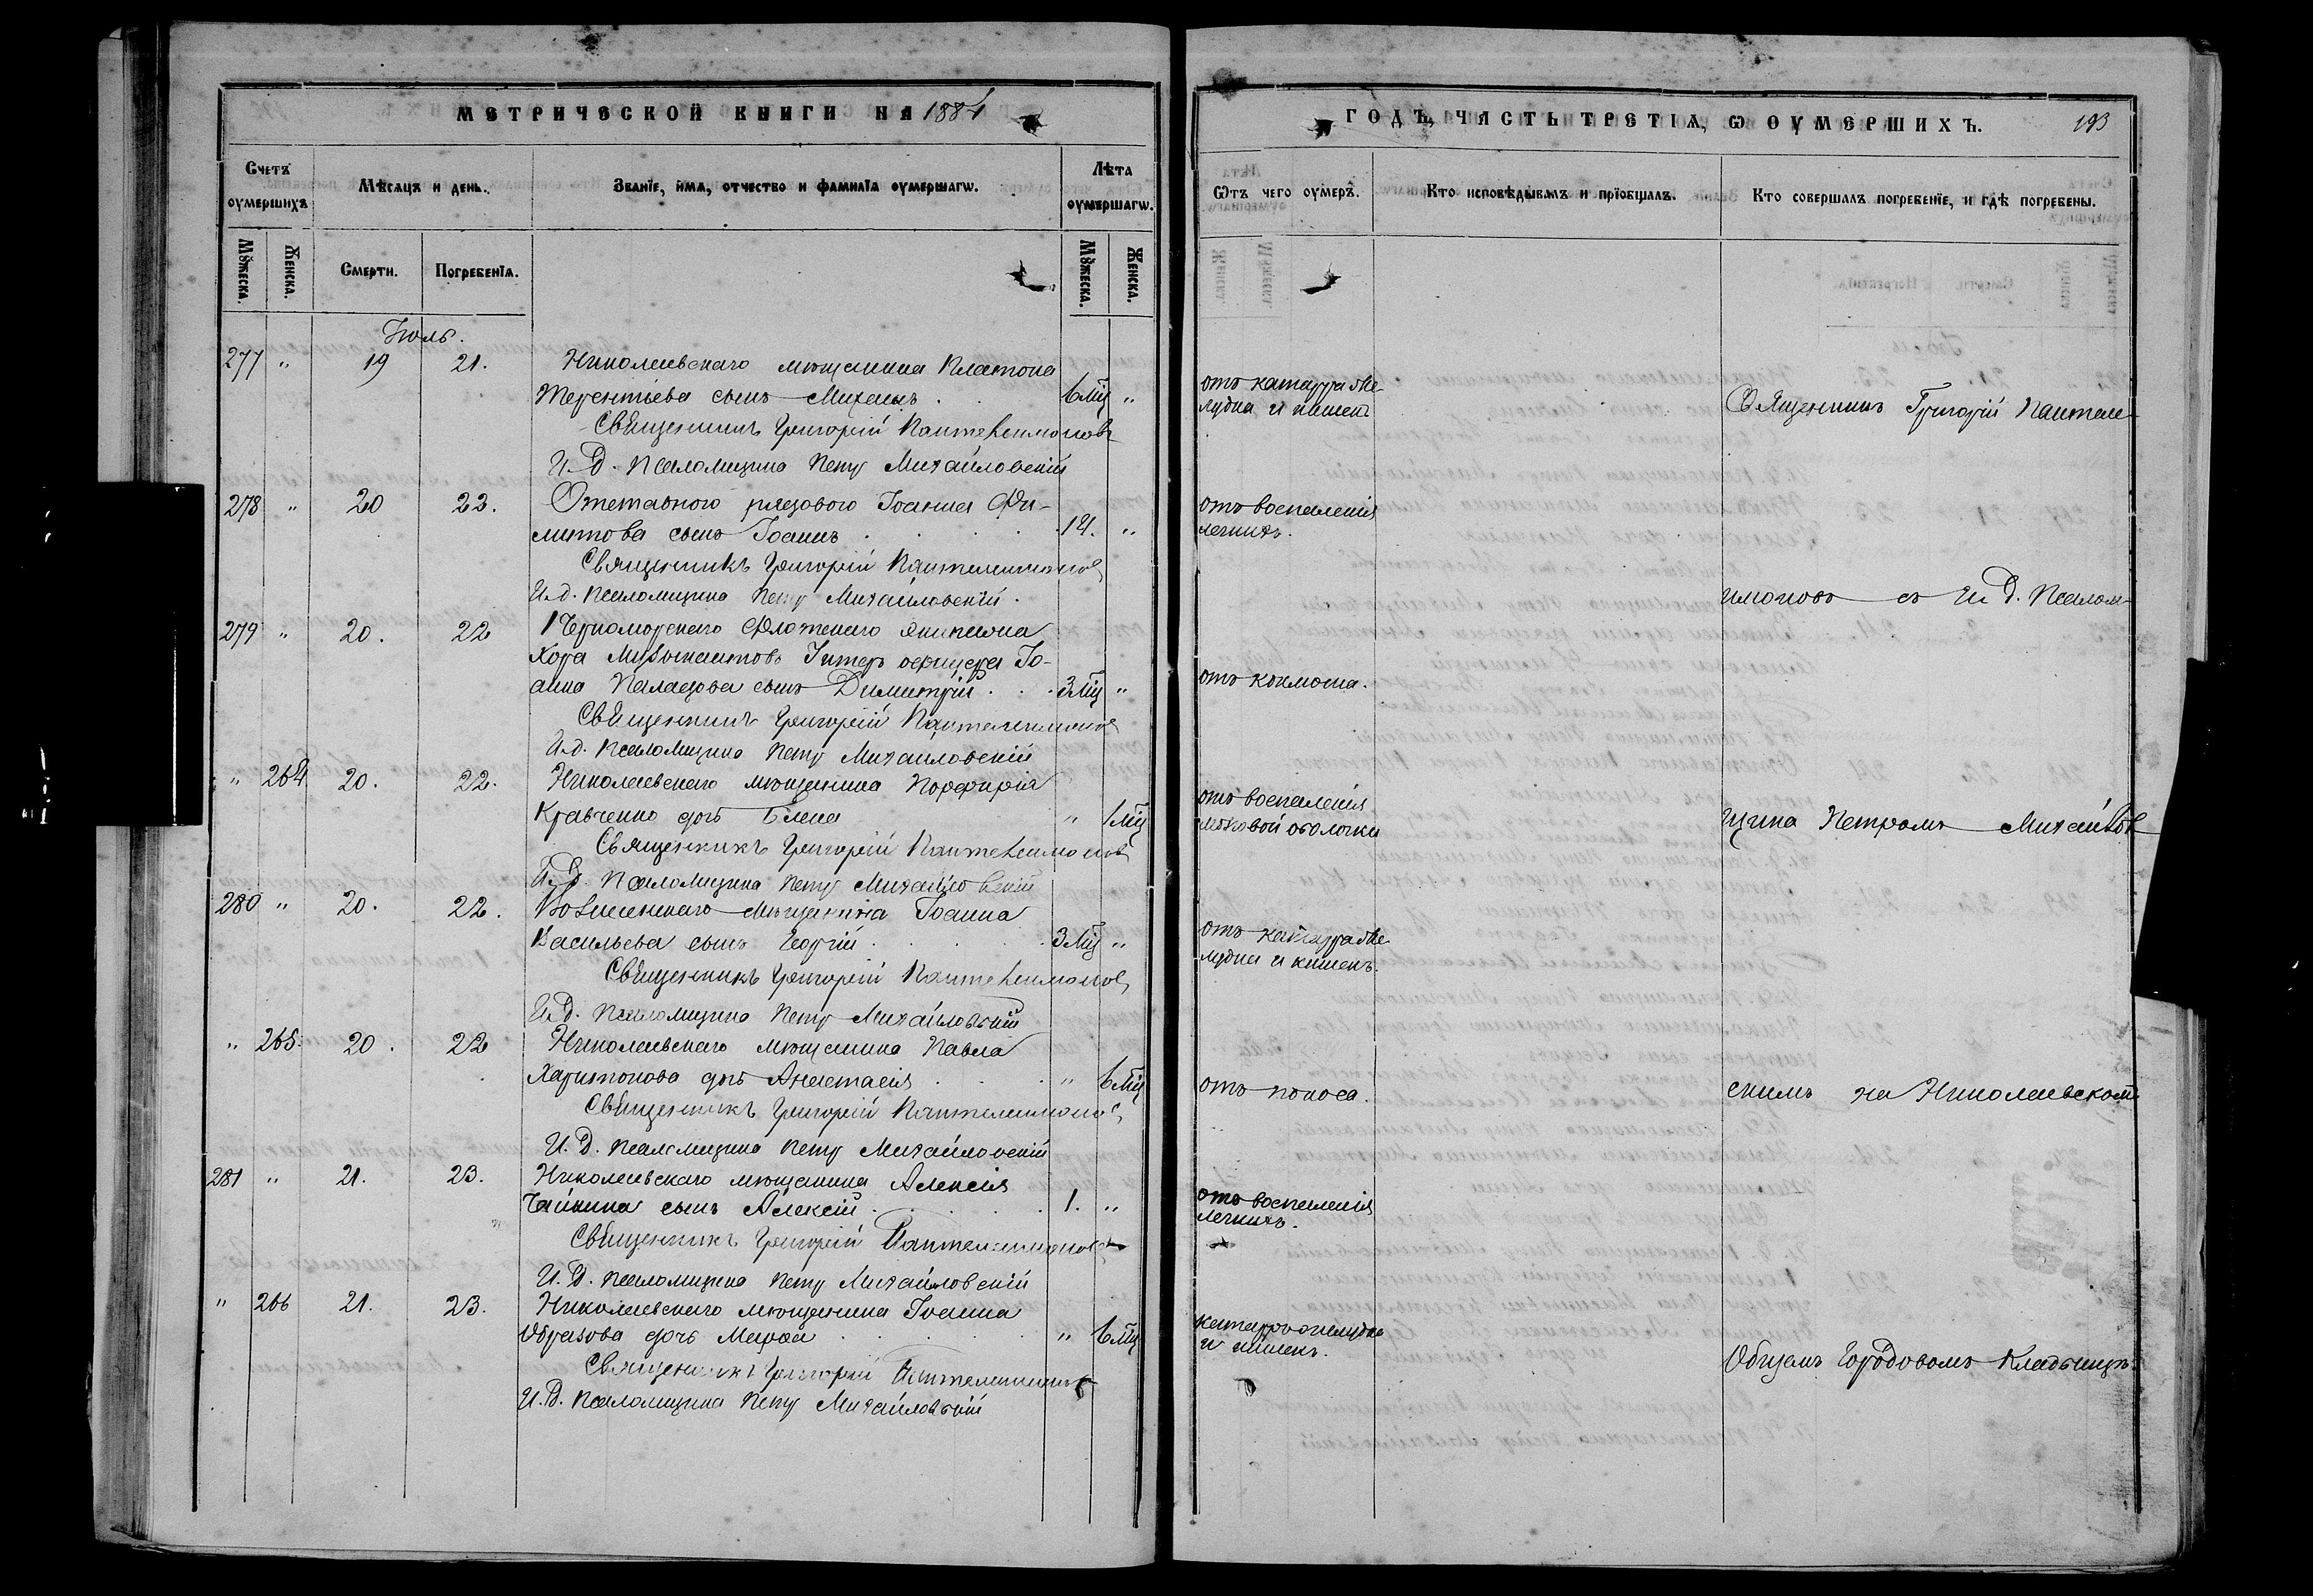 МЕТРИЧЕСКОЙ КНИГИ НА 1884
Счетъ оумершихъ
Мѣсяцъ и день.
Званїе, имя, отчество и фамилїя оумершагѡ.
Лѣта оумершагѡ.
Мꙋжеска.
Женска.
Смерти.
Погребенїя.
Мꙋжеска.
Женска.
Іюль.
277 " 19 21. Николаевскаго мѣщанина Платона
Терентьева сынъ Михаилъ . 6 мц "
Священникъ Григорій Пантелеимоновъ
И. Д. Псаломщика Петръ Михайловскій
278 " 20 22. Отставного рядового Іоанна Фи-
липова сынъ Іоаннъ 14. "
Священникъ Григорій Пантелеимонов
И. д. Псаломщика Петръ Михайловскій.
279 " 20. 22 Черноморскаго Флотскаго Экипажа
Хора Музыкантовъ Унтеръ офицера Іо-
анна Паладова сынъ Димитрій . . . 3 мц "
Священникъ Григорій Пантелеимонов
И. д. Псаломщика Петръ Михайловскій
" 264 20. 22. Николаевскаго мѣщанина Порфирія
Кравченко дочь Елена " 1 мц
Священникъ Григорій Пантелеимонов
И. Д. Псаломщика Петръ Михайловскій
280 " 20. 22. Вознесенскаго мѣщанина Іоанна
Васильева сынъ Георгій . . . . . 3 мц "
Священникъ Григорій Пантелеимонов
И. Д. Псаломщика Петръ Михайловскій
" 265. 20. 22 Николаевскаго мѣщанина Павла
Харитонова дочь Анастасія . . . " 6 мц
Священникъ Григорій Пантелеимонов
И. Д. Псаломщика Петръ Михайловскій
281 " 21. 23. Николаевскаго мѣщанина Алексія
Чайкина сынъ Алексій . . . . . 1. "
Священникъ Григорій Пантелеимонов
И. Д. Псаломщика Петръ Михайловскій
" 266 21. 23. Николаевскаго мѣщанина Іоанна
Образова дочь Марѳа . . . . . " 6 мц
Священникъ Григорій Пантелеимонов
И. Д. Псаломщика Петръ Михайловскій
ГОДЪ, ЧАСТЬ ТРЕТІѦ, Ѡ ОУМЕРШИХЪ. 193
Ѿтъ чего оумеръ.
Кто исповѣдывалъ и прїобщалъ.
Кто совершалъ погребенїе, и гдѣ погребены.
отъ катарра же-
лудка и кишекъ
Священникъ Григорій Пантеле-
отъ воспаленія
легкихъ.
имоновъ съ И. Д. Псалом-
отъ коклюша.
отъ воспаленія
мозговой оболочки
щика Петромъ Михайлов-
отъ катарра же-
лудка и кишекъ.
отъ поноса.
скимъ на Николаевскомъ
отъ воспаленія
легкихъ.
катарръ желудка
и кишекъ.
Общемъ Городовомъ Кладбищѣ.